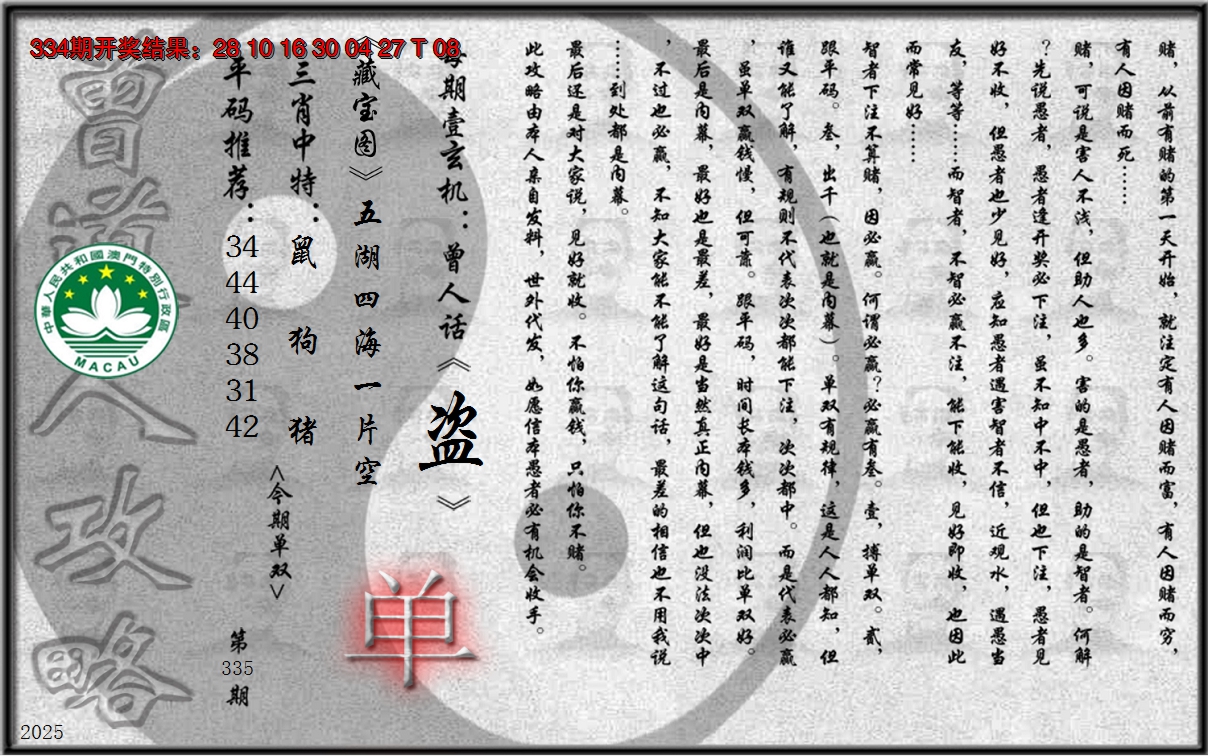 334期开奖结果：28 10 16 30 04 27 T 08
赌，从前有赌的第一天开始，就注定有人因赌而富，有人因赌而穷，
有人因赌而死……
赌，可说是害人不浅，但助人也多。害的是愚者，助的是智者。何解
？先说愚者，愚者逢开奖必下注，虽不知中不中，但也下注，愚者见
好不收，但愚者也少见好，应知愚者遇害智者不信，近观水，遇愚当
友，等等……而智者，不智必赢不注，能下能收，见好即收，也因此
而常见好……
智者下注不算赌，因必赢。何谓必赢？必赢有叁。壹，搏单双。贰，
跟平码。叁，出千（也就是内幕）。单双有规律，这是人人都知，但
谁又能了解，有规则不代表次次都能下注，次次都中。而是代表必赢
，虽单双赢钱慢，但可靠。跟平码，时间长本钱多，利润比单双好。
最后是内幕，最好也是最差，最好是当然真正内幕，但也没法次次中
，不过也必赢，不知大家能不能了解这句话，最差的相信也不用我说
……到处都是内幕。
最后还是对大家说，见好就收。不怕你赢钱，只怕你不赌。
此攻略由本人亲自发料，世外代发，如愿信本愚者必有机会收手。
每期壹玄机：曾人话《盗》
《藏宝图》五湖四海一片空
单
三肖中特：鼠 狗 猪
<今期单双>
平码推荐：34 44 40 38 31 42
第335期
曾道人攻略
中華人民共和國澳門特別行政區
MACAU
2025